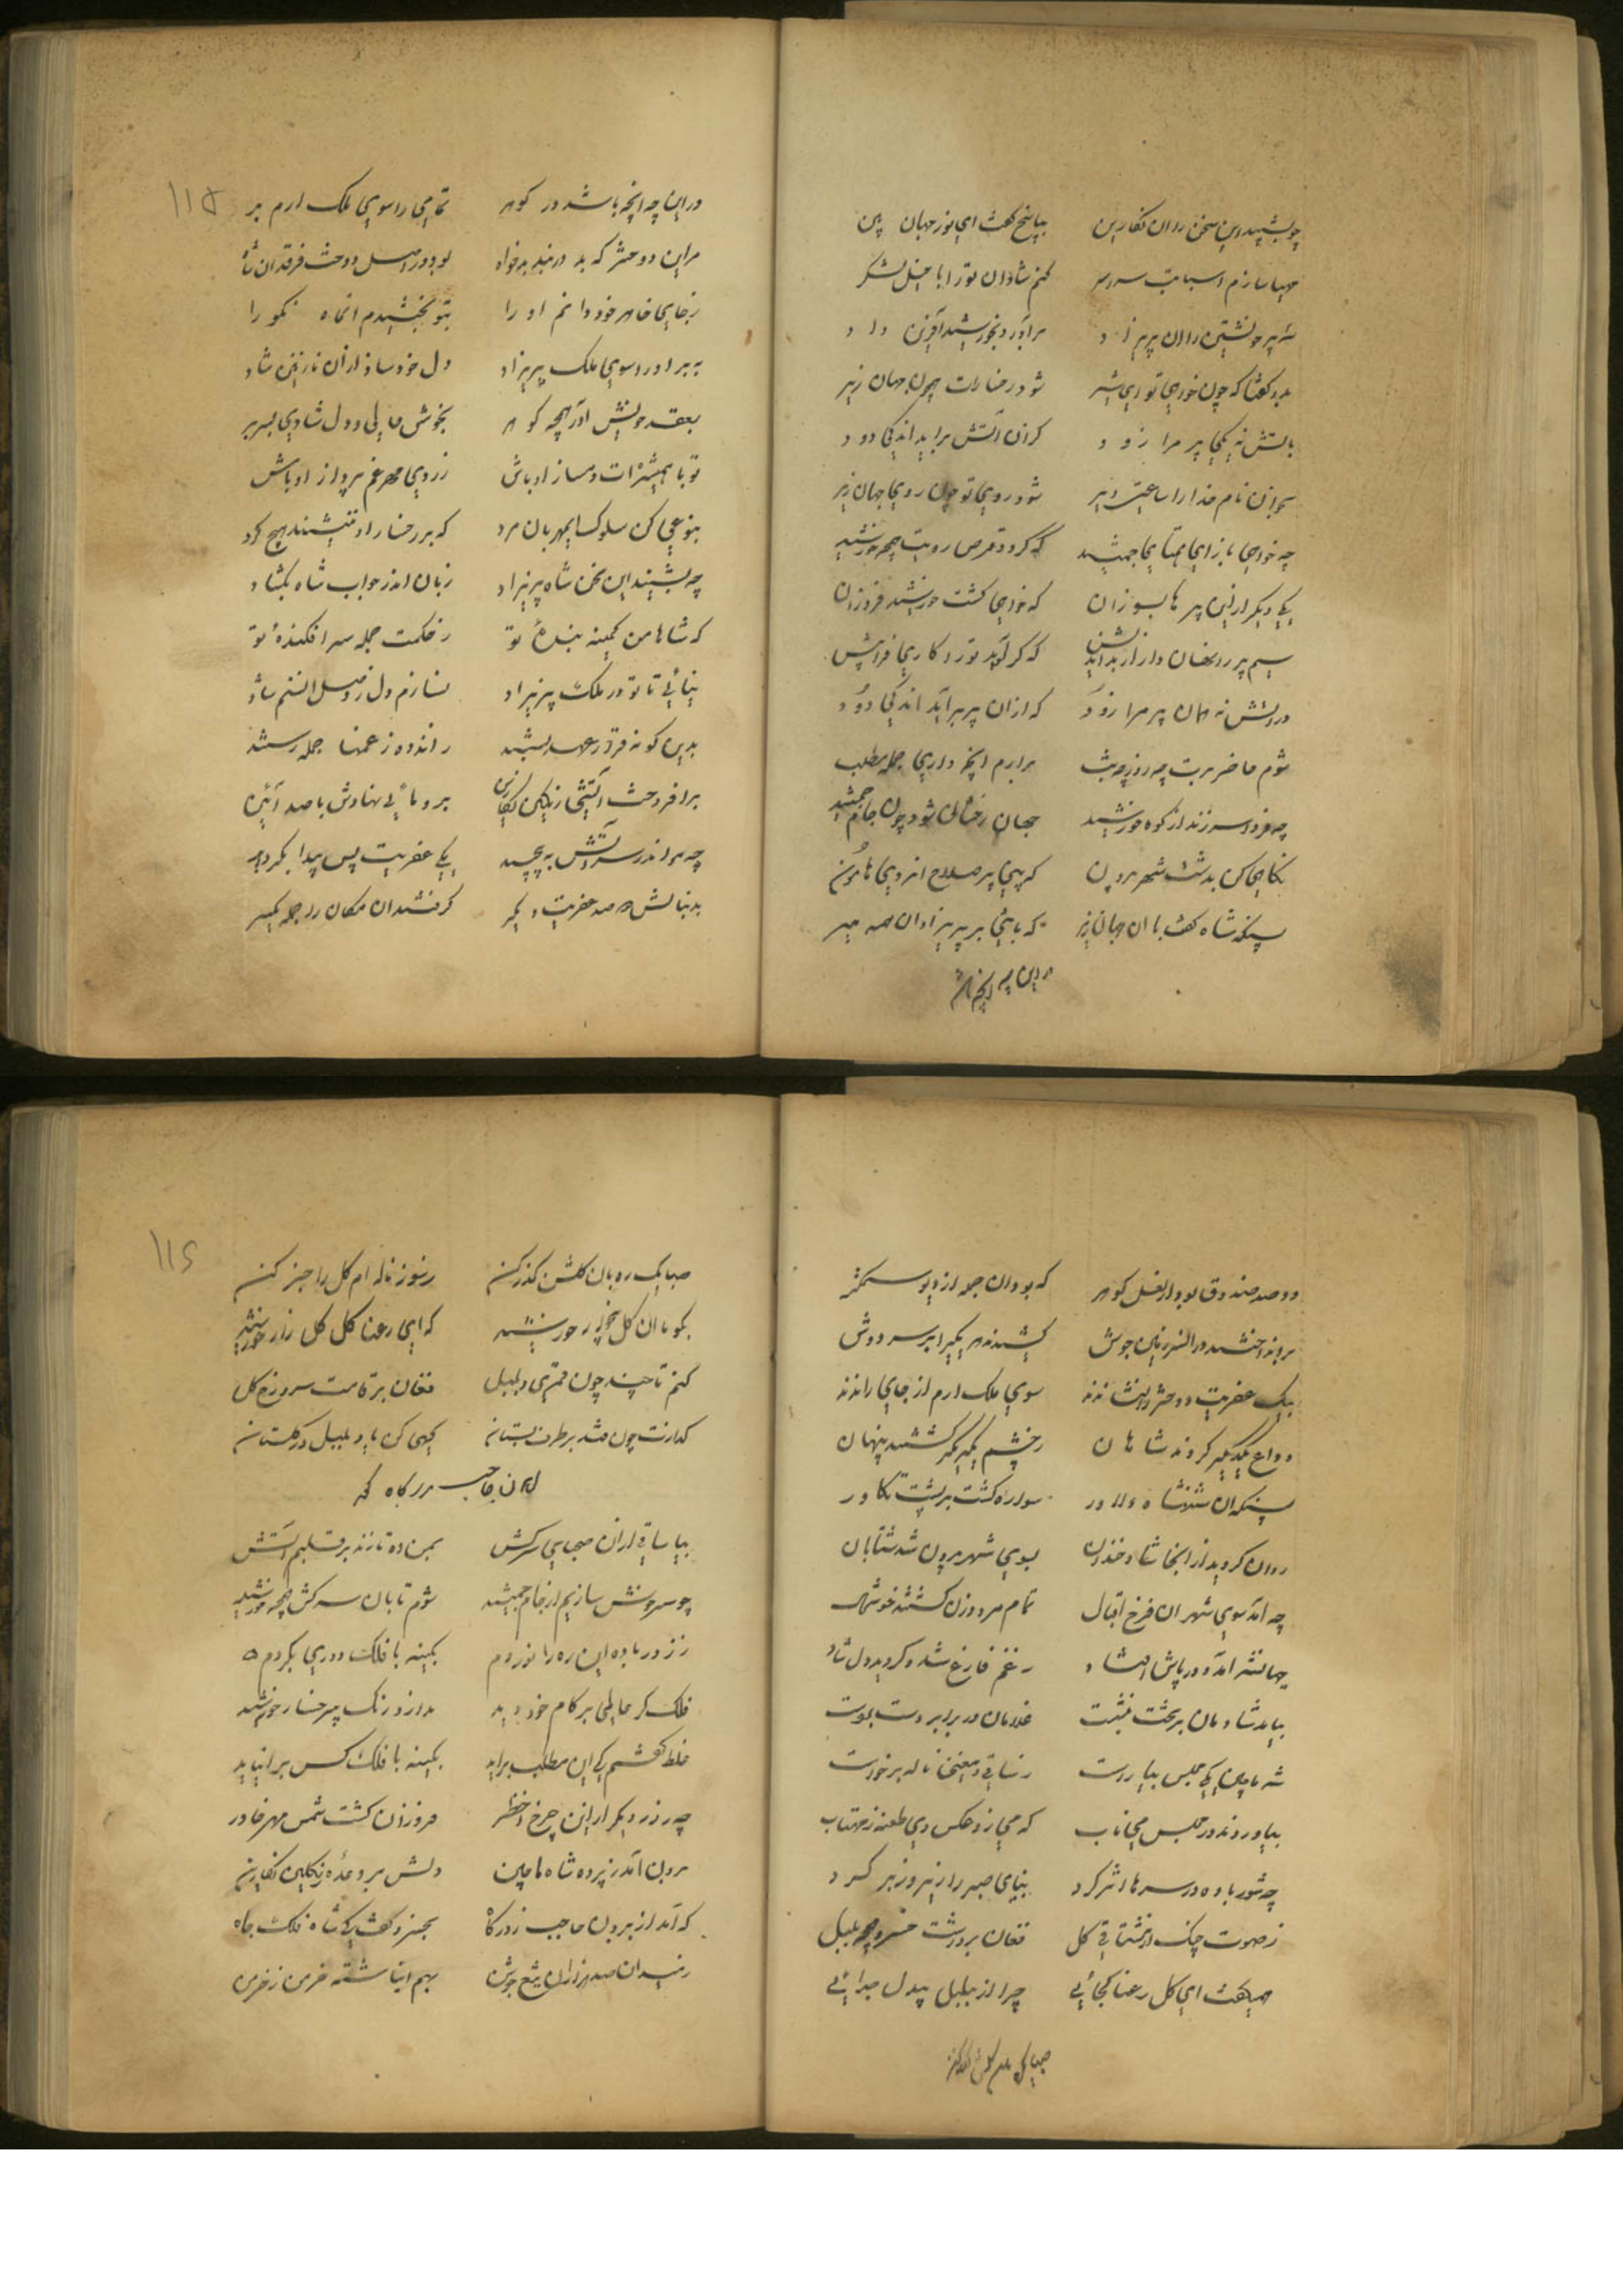 چو بشنید این سخن زان نگارین بپاسخ گفت ای نور جهان بین
مهیا سازم اسبابت سراسر کنم شادان تو را با خیل لشکر
سه پر خویشتن را آن پریزاد برآورد و بخورشید آفرین داد
بدو گفتا که چون خواهی تو ای شیر شود رخسارت همچون جهان زیر
بآتش نه یکی پر مرا زود کزان آتش برآید اندکی دود
بخوان نام خدا را ساعتی دیر شود روی تو چون روی جهان زیر
چه خواهی باز ای همتای جمشید که گردد قرص رویت همچو خورشید
یکی دیگر ازین پرها بسوزان که خواهی گشت خورشید فروزان
سیم پر را نهان دار از بداندیش که گر آید تو را کاری فراپیش
در آتش نه همان پر مرا زود که از آن پر برآید اندکی دود
شوم حاضر برت چه روز و چه شب برآرم آنچه داری جمله مطلب
چه فردا سر زند از کوه خورشید جهان رخشان شود چون جام جمشید
نگاهی کن بدشت شهر بیرون که بینی پر صلاح از روی هامون
پس آنگه شاه گفت با آن جهان زیر که باشی بر پریزادان همه میر
در این چه آنچه باشد
در این چه آنچه باشد در گوهر تمامی را سوی ملک ارم بر
مر این دو دختر که بد در بند بدخواه
ز جای خواهر خود دانم او را بتو بخشیدم آن ماه نکو را
ببر او را سوی ملک پریزاد دل خود ساز از آن نازنین شاد
بعقد خویش آور همچو گوهر بخوش حالی و دل شادی بسر بر
تو با همشیره‌ات دمساز او باش ز روی مهر غم پرداز او باش
بنوعی کن سلوک ای مهربان مرد که بر رخسار او ننشیند هیچ گرد
چه بشنید این سخن شاه پریزاد زبان اندر جواب شاه بگشاد
که شاها من کمینه بنده تو ز خدمت جمله سرافکنده تو
بیائی تا تو در ملک پریزاد نسازم دل ز وصل آن صنم شاد
بدین گونه قرار عهد بستند ز اندوه ز غمها جمله رستند
برافروخت آتشی از کین نگارین
چه مو اندر سر آتش به پیچید یکی عفریت پس پیدا بگردید
بدنبالش دو صد عفریت دیگر گرفتند آن مکان را جمله یکسر
۱۱۵
دو صد صندوق بود از لعل گوهر که بود آن جمله از دیو ستمگر
کشیدند هر یکی را بر سر دوش
بیک عفریت دو دختر را نشاندند سوی ملک ارم از جای راندند
وداع یکدیگر کردند شاهان ز چشم یکدیگر گشتند پنهان
پس آنگه آن شهنشاه دلاور سواره گشت بر پشت تکاور
روان گردید از آنجا شاد و خندان بسوی شهر بیرون شد شتابان
چه آمد سوی شهر آن فرخ اقبال تمام مرد و زن گشتند خوشحال
جهانشه آمد و در پاش افتاد ز غم فارغ شد و گردید دلشاد
بیامد شادمان بر تخت بنشست غلامان در برابر دست بر دست
شه ماچین یکی مجلس بیاراست ز ساقی و مغنی ناله برخواست
بیاوردند در مجلس می ناب که می زد عکس وی طعنه ز مهتاب
چه شور باده در سرها اثر کرد بنای صبر را زیر و زبر کرد
ز صوت چنگ از مشتاقی گل فغان برداشت خسرو همچو بلبل
همی گفت ای گل رعنا کجائی چرا از بلبل بیدل جدائی
صبا یک ره بآن گلشن گذر کن
صبا یک ره بآن گلشن گذر کن ز سوز ناله‌ام گل را خبر کن
بگو با آن گل خورشید که ای رعنا گل گلزار خورشید
کنم تا چند چون قمری و بلبل فغان بر قامت سرو و رخ گل
گذارت چون فتد بر طرف بستان گهی کن یاد بلبل در گلستان
آمدن حاجب بدرگاه
بیا ساقی از آن صهبای سرکش بمن ده تا زند بر قلبم آتش
چو سرخوش سازیم از جام جمشید شوم تابان سرکش همچو خورشید
ز زور باده این ره را نوردم بکینه با فلک دوری بگردم
فلک گر عالمی بر کام خود دید ندارد رنگ بر رخسار خورشید
غلط گفتم کی این مطلب برآید بکینه با فلک کس برنیاید
چه روز دیگر از این چرخ اخضر فروزان گشت شمس مهر خاور
برون آمد ز پرده شاه ماچین
که آمد از برون حاجب ز درگاه بعجز و گفت کی شاه فلک جاه
۱۱۶